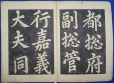 都総府
副総管
行嘉義
大夫同